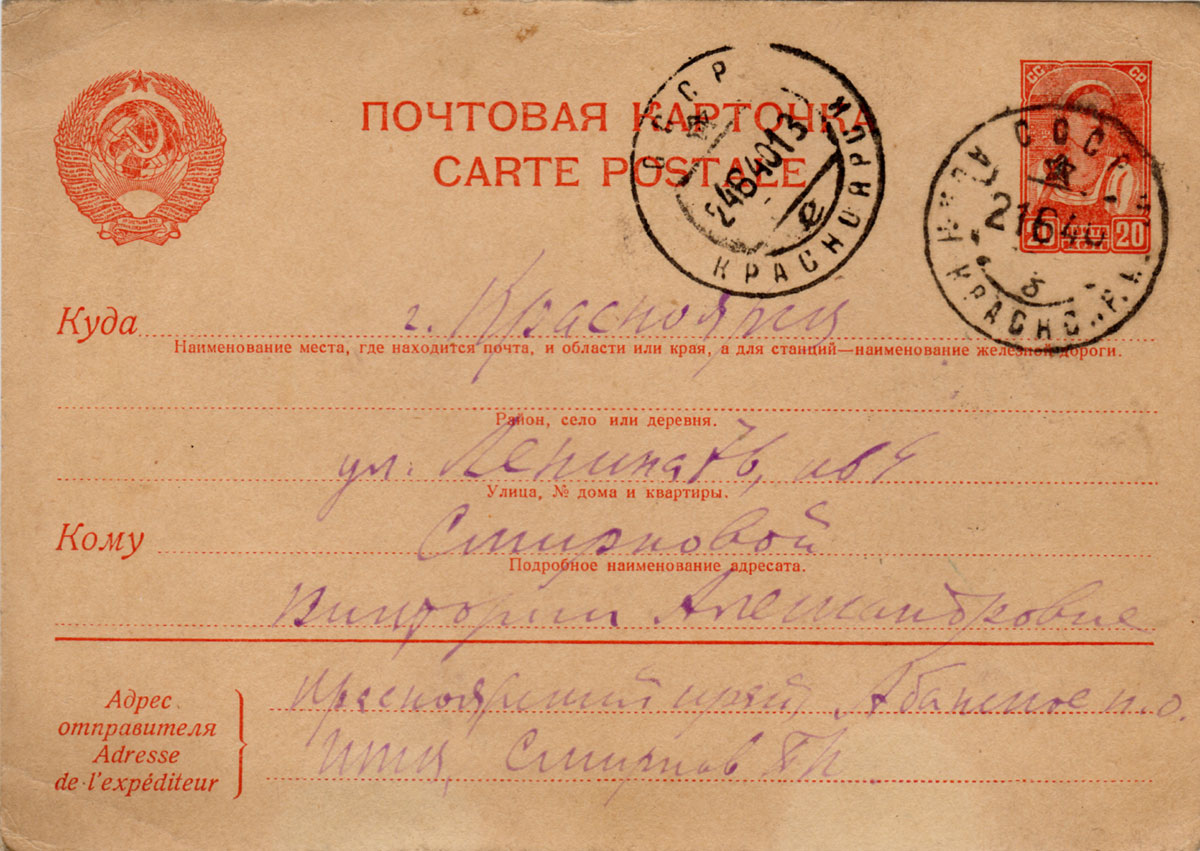 ПОЧТОВАЯ КАРТОЧКА
CARTE POSTALE
СССР
24 6 40 13
КРАСНОЯРСК
е
СССР
21 6 40
б
СС СР
20 20
Куда г. Красноярск
Наименование места, где находится почта, и области или края, а для станций—наименование железной дороги.
Район, село или деревня.
ул. Ленина 76, кв 4
Улица, № дома и квартиры.
Кому Смирновой
Подробное наименование адресата.
Виктории Александровне
Адрес отправителя
Adresse de l'expéditeur
Красноярский край, Абанское п.о.
Смирнов